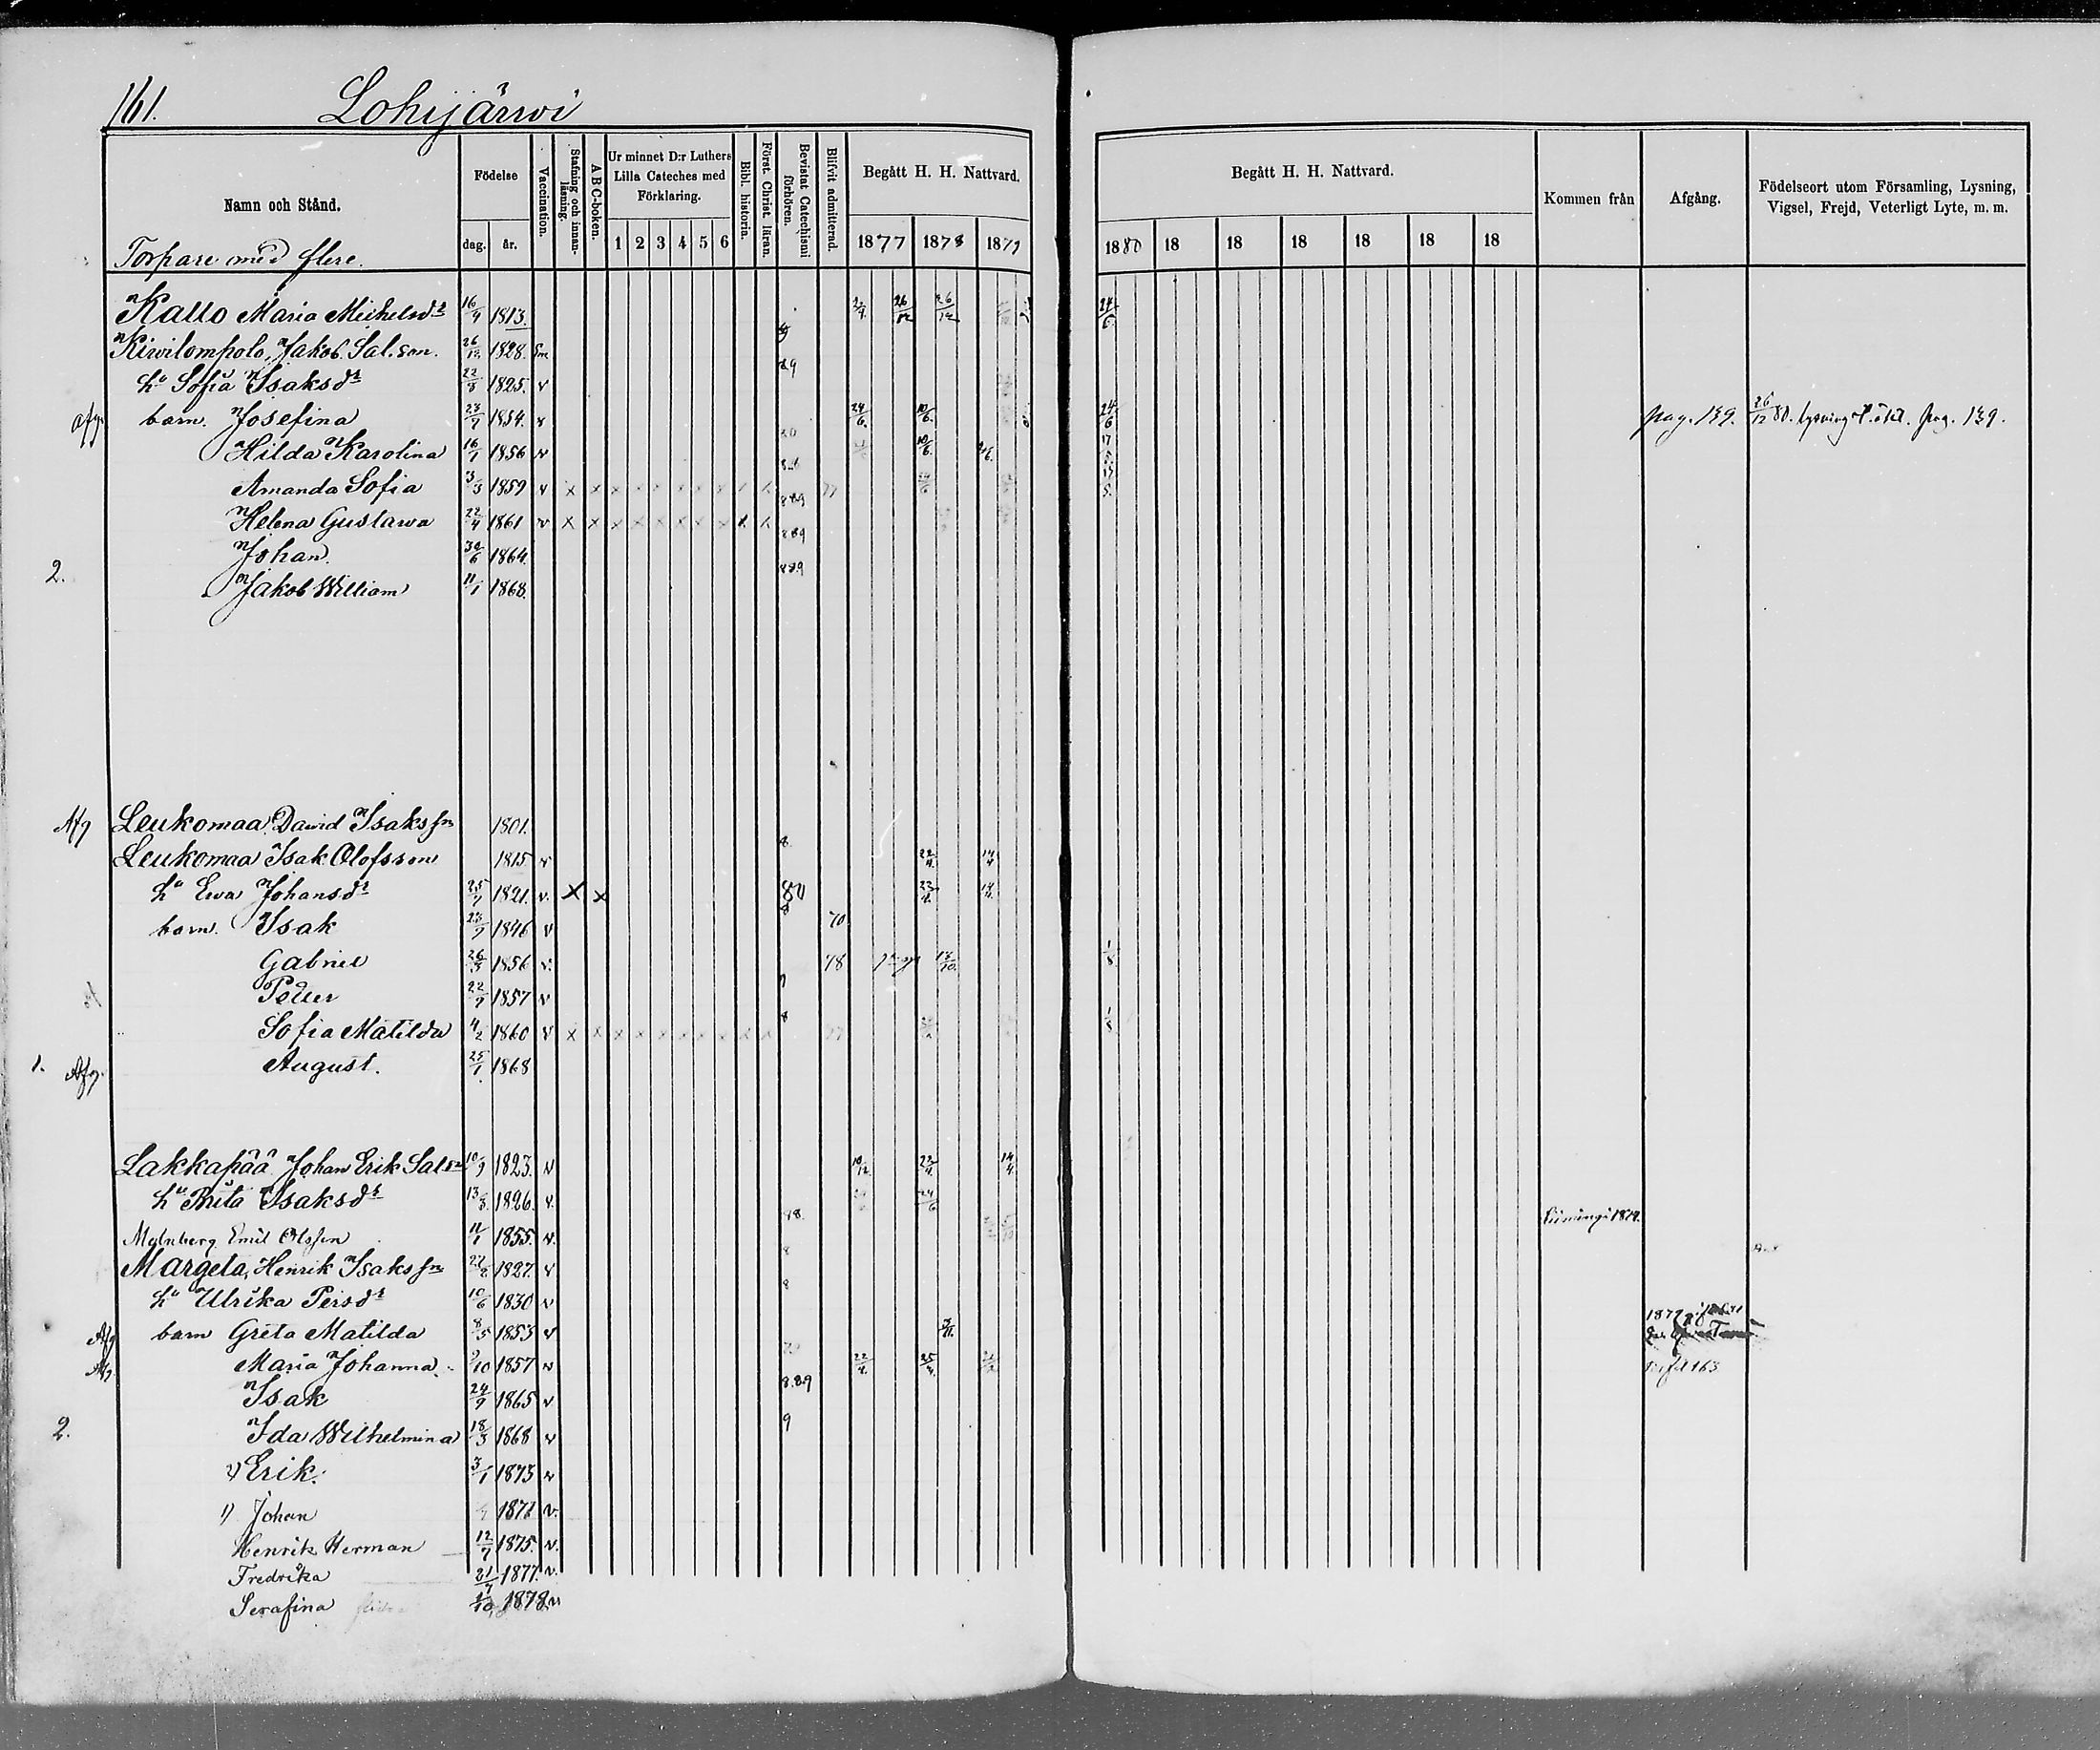 161. Lohijärwi
Namn och Stånd.
Födelse
dag. år.
Vaccination.
Stafning och innanläsning.
A B C-boken.
Ur minnet D:r Luthers Lilla Cateches med Förklaring.
1 2 3 4 5 6
Bibl. historia.
Först. Christ. läran.
Bevistat Catechismi förhören.
Blifvit admitterad.
Begått H. H. Nattvard.
1877 1878 1879
Begått H. H. Nattvard.
1880 18 18 18 18 18 18
Kommen från
Afgång.
Födelseort utom Församling, Lysning, Vigsel, Frejd, Veterligt Lyte, m. m.
Torpare med flere.
Kallo Maria Michelsdr 16/9 1813. 26/12 26/12 24/6
Kiwilompolo, Jakob Sal.son. 26/12 1828.
hu Sofia Isaksdr 22/8 1825. v
afg. barn. Josefina 23/7 1854. v 24/6 10/6 24/6 pag. 139. 26/12 80. lysning t. äkt. pag. 139.
Hilda Karolina 16/1 1856 v 10/6 17/5
Amanda Sofia 3/3 1859 v x x x x x x x x 77
Helena Gustawa 22/4 1861 v x x x x x x x x
Johan. 30/6 1864. 889
2. Jakob William 11/1 1868. 889
Afg Leukomaa David Isaksson 1801.
Leukomaa Isak Olofsson 1815 v 8 22/4 14/4
hu Ewa Johansdr 25/7 1821. v. x x 80 23/4 14/4
barn. Isak 23/7 1846 v 8 70
Gabriel 26/3 1856 v. 78 18/10 1/8
Petter 22/7 1857 v
Sofia Matilda 4/2 1860 v x x x x x x x x x x 77 1/8
1. Afg. August. 25/1 1868
Lakkapää Johan Erik Salsn 10/9 1823. v 10/12 22/4 14/4
hu Brita Isaksdr 13/3 1826. v. 24/6
Malnberg Emil Olsson 11/1 1855. v. 78. Kiimingi 1879.
Margeta, Henrik Isaksson 1827. v 8
hu Ulrika Persdr 10/6 1830 v 8
Afg barn Greta Matilda 8/5 1853 v
Afg. Maria Johanna. 9/10 1857 v 22/4 25/4 163
Isak 24/9 1865 v 8.89
2. Ida Wilhelmina 18/3 1868 v 9
2) Erik. 3/1 1873 v
1) Johan 1871 v.
Henrik Herman 12/7 1875. v.
Fredrika 21/7 1877. v.
Serafina 1/10 1878 v